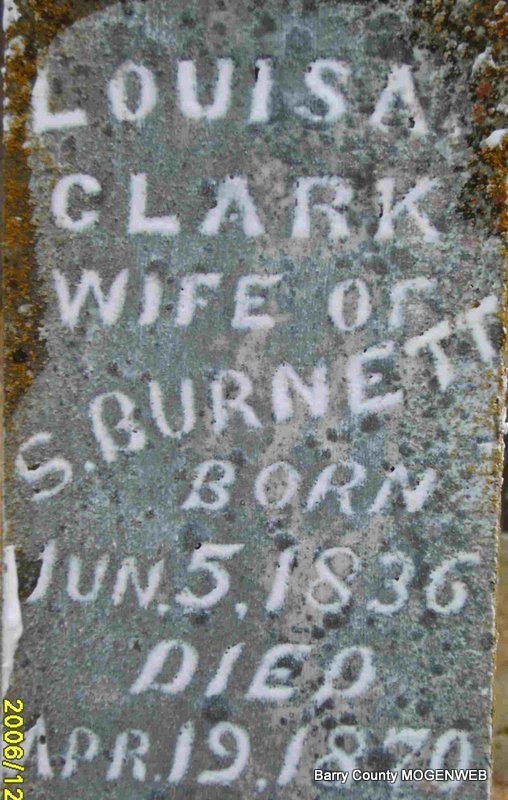 LOUISA
CLARK
WIFE OF
S. BURNETT
BORN
JUN. 5, 1836
DIED
APR. 19, 1870
Barry County MOGENWEB
2006/12